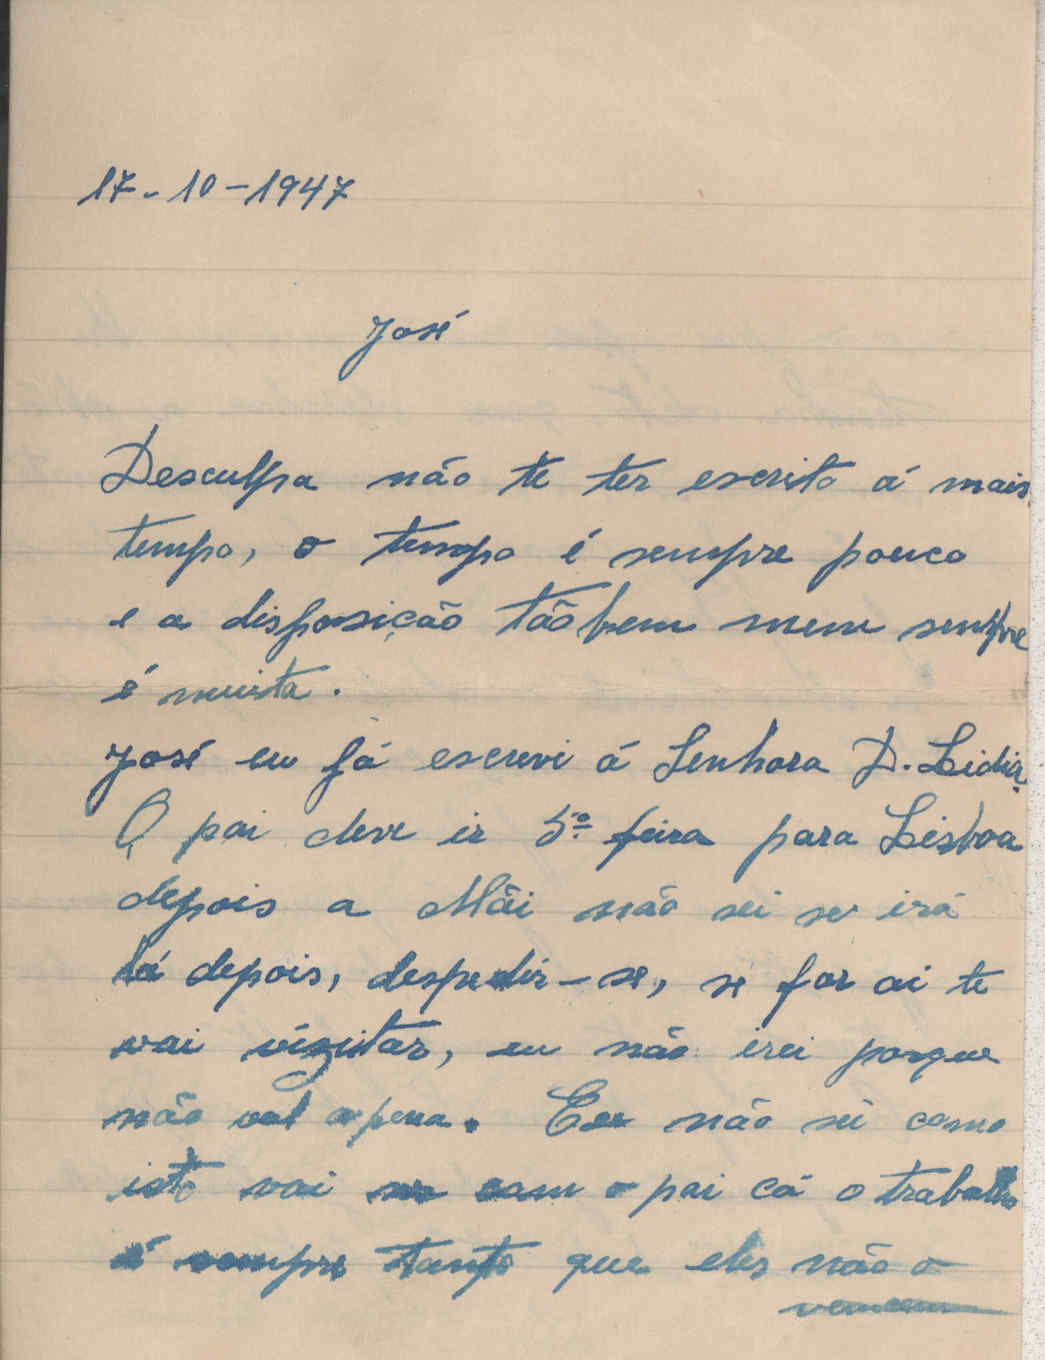 17-10-1947
José
Desculpa não te ter escrito á mais
tempo, o tempo é sempre pouco
e a disposição tãobem mem sempre
é muita.
José eu já escrevi á Senhora D. Lidia.
O pai deve ir 5ª feira para Lisboa
depois a Mãi não sei se irá
lá depois, despedir-se, se for ai te
vai vizitar, eu não irei porque
não val a pena. Eu não sei como
isto vai com o pai cá o trabalho
é sempre tanto que eles não o
vencem